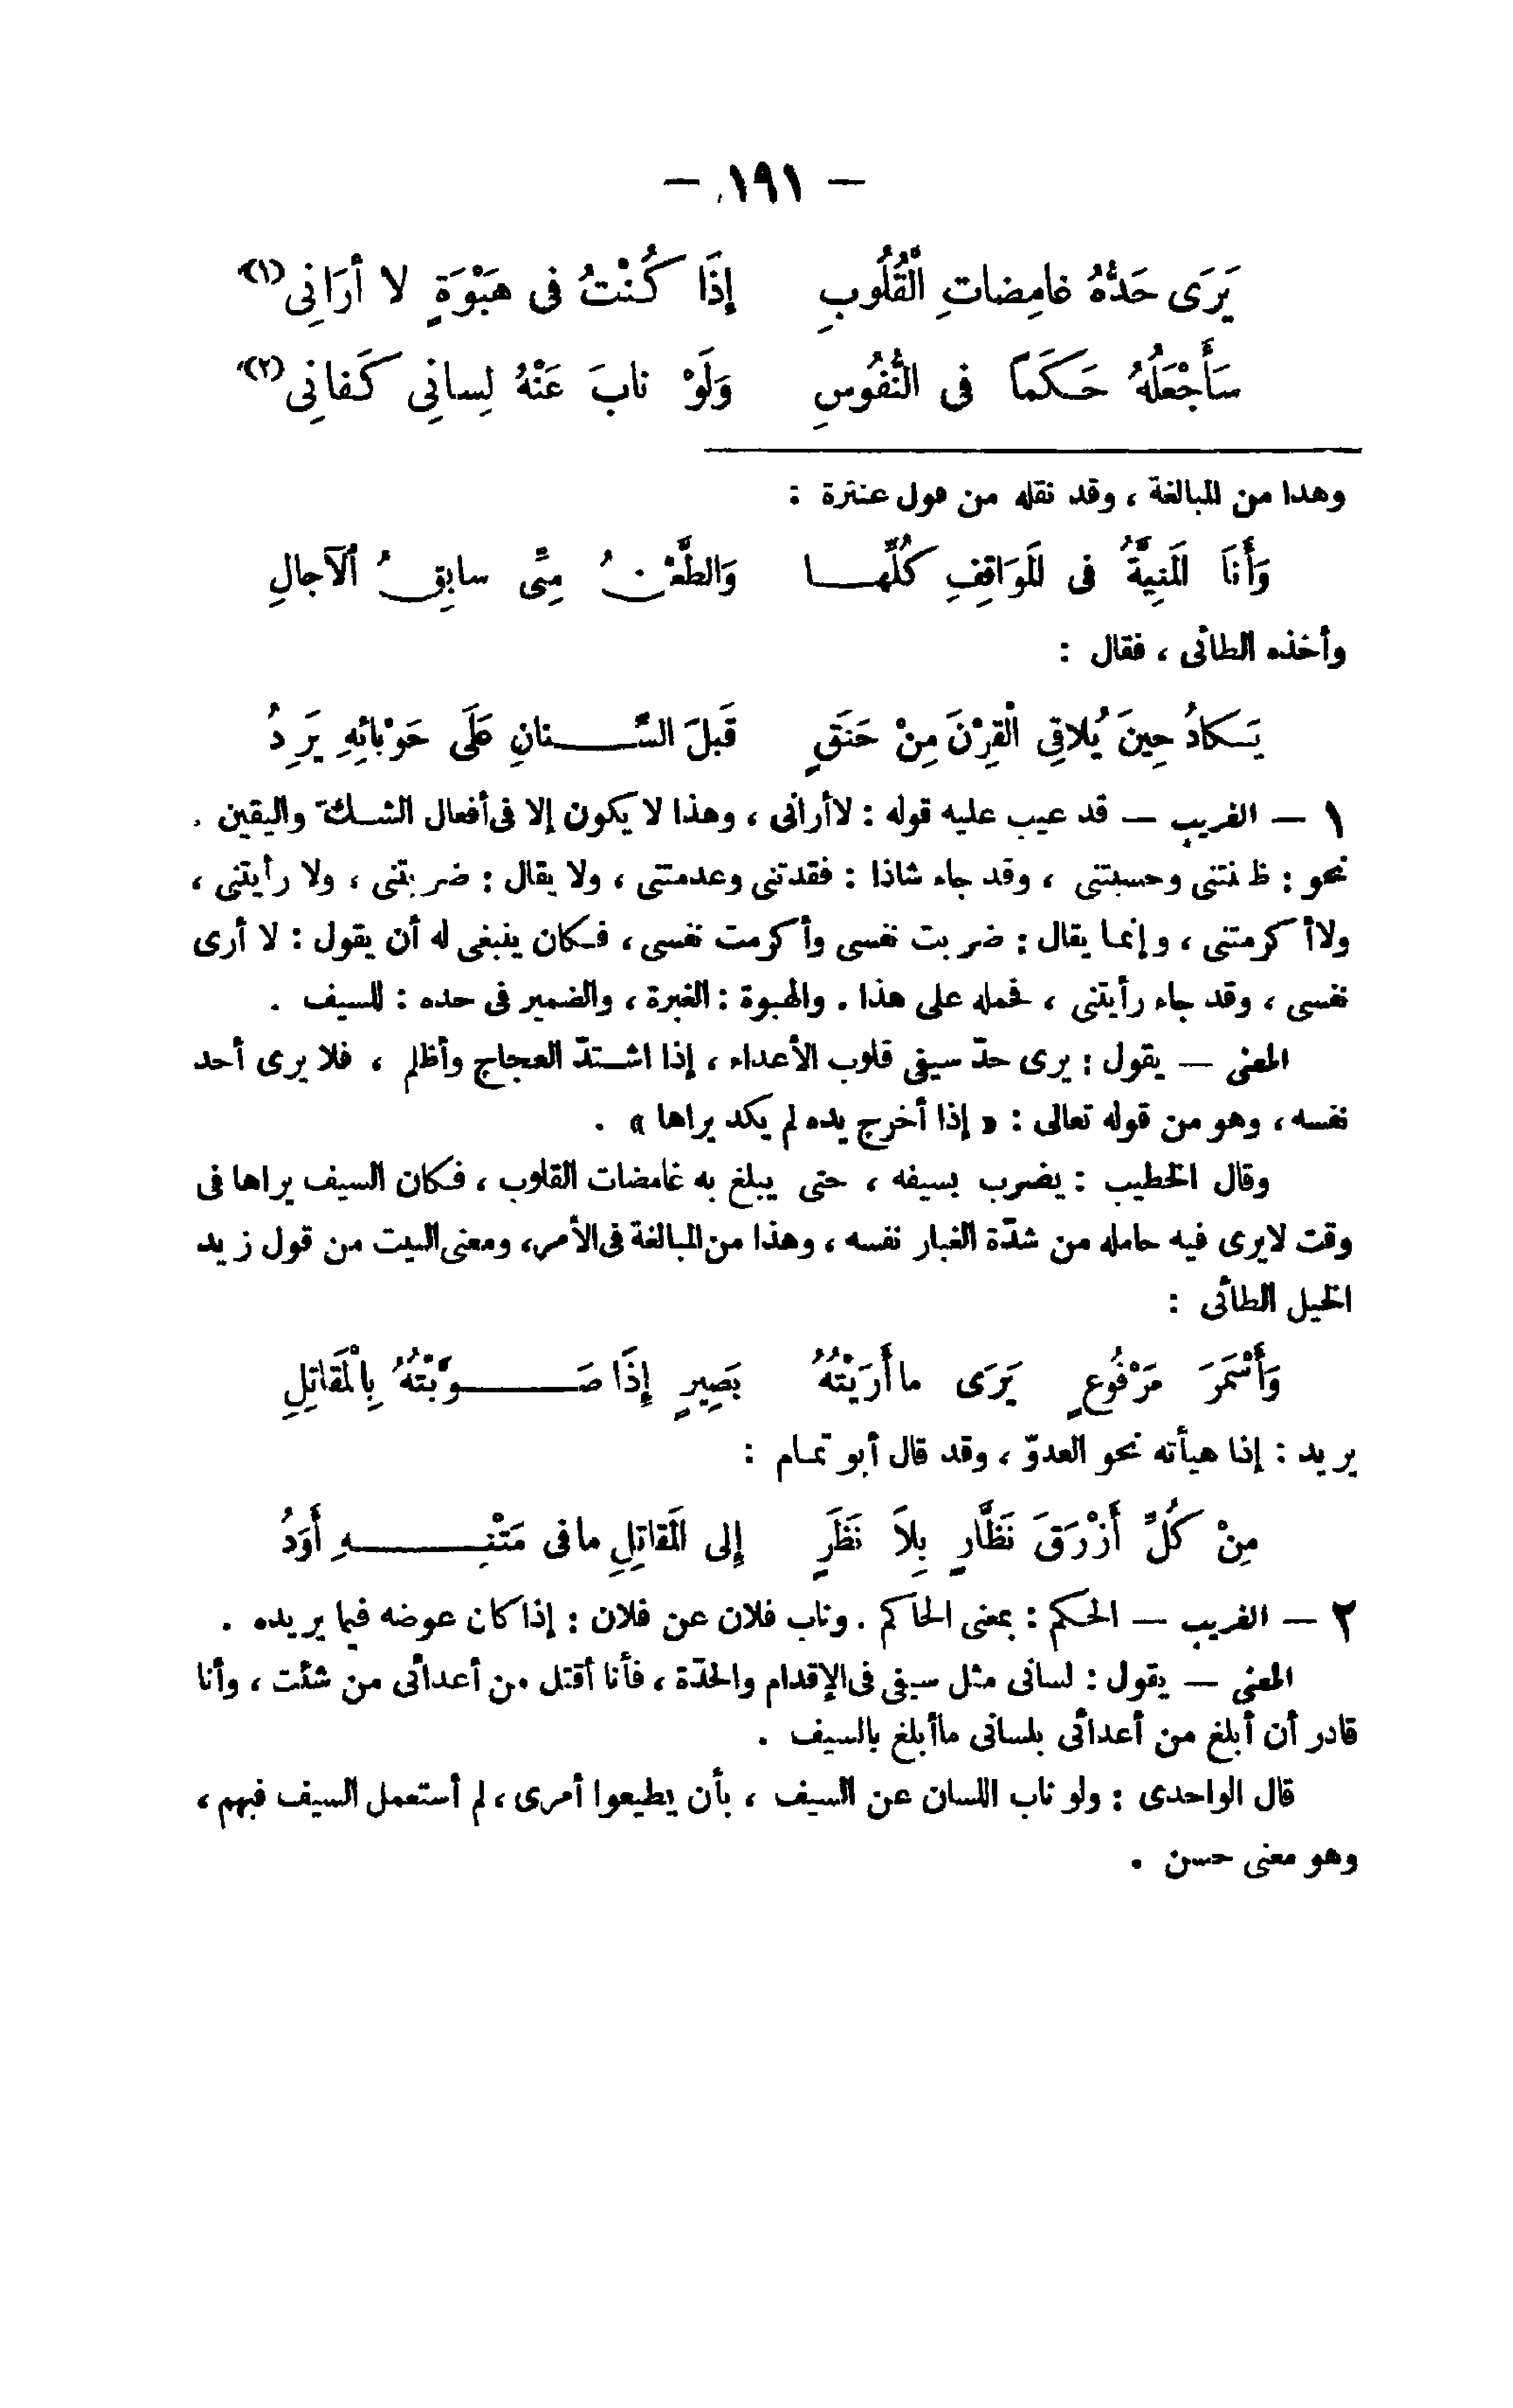 — ١٩١ —
يَرَى حَدُّهُ غامِضاتِ الْقُلُوبِ إِذَا كُنْتُ فى هَبْوَةٍ لا أرَانِى (١)
سَأَجْعَلُهُ حَكَماً فى النُّفُوسِ وَلَوْ نابَ عَنْهُ لِسانِي كَفانِى (٢)
وهذا من المبالغة ، وقد نقله من قول عنترة :
وَأَنَا المَنِيَّةُ فى المَوَاقِفِ كُلِّهـا وَالطَّعْنُ مِنِّى سابِقُ الآجالِ
وأخذه الطائى ، فقال :
يَكادُ حِينَ يُلاقِى الْقِرْنَ مِنْ حَنَقٍ قَبلَ السِّـنانِ عَلَى حَوْبائِهِ يَرِدُ
١ — الغريب — قد عيب عليه قوله : لاأرانى ، وهذا لا يكون إلا فى أفعال الشك واليقين .
نحو : ظننتنى وحسبتنى ، وقد جاء شاذا : فقدتنى وعدمتنى ، ولا يقال : ضربتنى ، ولا رأيتنى ،
ولاأكرمتنى ، وإنما يقال : ضربت نفسى وأكرمت نفسى ، فكان ينبغى له أن يقول : لا أرى
نفسى ، وقد جاء رأيتنى ، فحمله على هذا . والهبوة : الغبرة ، والضمير فى حده : للسيف .
المعنى — يقول : يرى حدّ سيفى قلوب الأعداء ، إذا اشتدّ العجاج وأظلم ، فلا يرى أحد
نفسه ، وهو من قوله تعالى : « إذا أخرج يده لم يكد يراها » .
وقال الخطيب : يضرب بسيفه ، حتى يبلغ به غامضات القلوب ، فكان السيف يراها فى
وقت لايرى فيه حامله من شدّة الغبار نفسه ، وهذا من المبالغة فى الأمر، ومعنى البيت من قول زيد
الخيل الطائى :
وَأَسْمَرَ مَرْفُوعٍ يَرَى ماأَرَيْتُهُ بَصِيرٍ إِذَا صَـوَّبْتُهُ بِالْمَقاتِلِ
يريد : إذا هيأته نحو العدوّ ، وقد قال أبو تمام :
مِنْ كُلِّ أَزْرَقَ نَظَّارٍ بِلاَ نَظَرٍ إِلى المَقاتِلِ مافى مَتْنِـهِ أَوَدُ
٢ — الغريب — الحكم : بمعنى الحاكم . وناب فلان عن فلان : إذا كان عوضه فيما يريده .
المعنى — يقول : لسانى مثل سيفى فى الإقدام والحدّة ، فأنا أقتل من أعدائى من شئت ، وأنا
قادر أن أبلغ من أعدائى بلسانى ماأبلغ بالسيف .
قال الواحدى : ولو ناب اللسان عن السيف ، بأن يطيعوا أمرى ، لم أستعمل السيف فيهم ،
وهو معنى حسن .